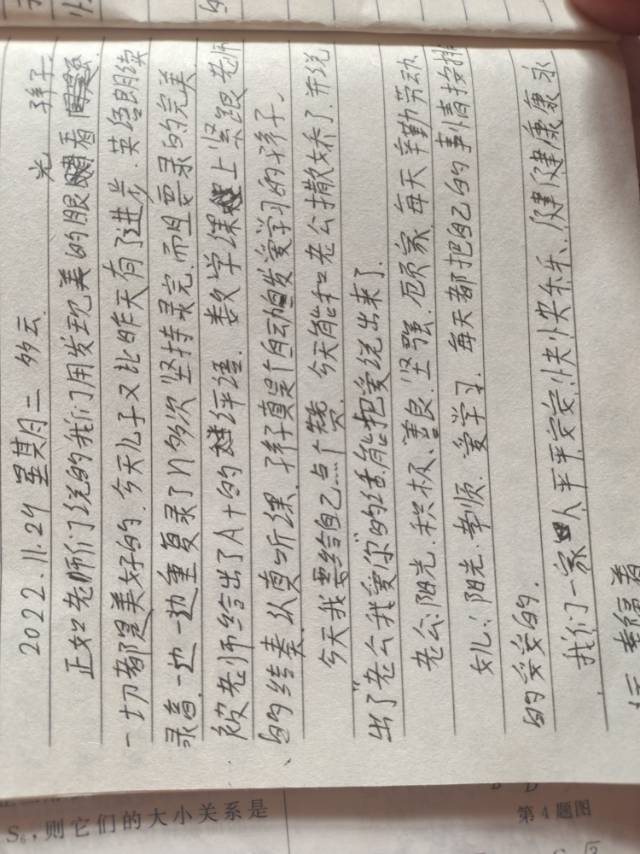 2022.11.29 星期二 多云.
正如老师们说的我们用发现美的眼睛看
一切都是美好的.今天儿子又比昨天有了进步.英语朗读
录音.一边一边重复录了n多次坚持录完.而且要录的完美
被老师给出了A+的评语.数学课上紧跟老师
的结奏.认真听课.孩子真是个自动自发爱学习的孩子.
今天我要给自己点个赞.今天能和老公撒娇了.并说
出了"老公我爱你"的话.能把爱说出来了.
老公:阳光.积极.善良.坚强.顾家.每天辛勤劳动.
女儿:阳光.孝顺.爱学习.每天都把自己的事情按排
的妥妥的.
我们一家人平平安安.快快乐乐、健健康康永
S₆,则它们的大小关系是
第4题图